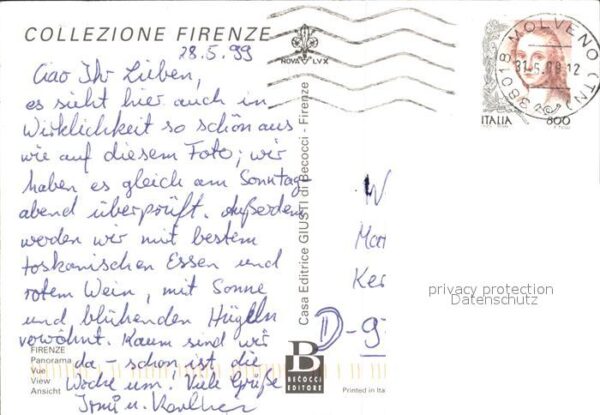 COLLEZIONE FIRENZE
NOVA LVX
28.5.99
Ciao Ihr Lieben,
es sieht hier auch in
Wirklichkeit so schön aus
wie auf diesem Foto; wir
haben es gleich am Sonntag
abend überprüft. Außerdem
werden wir mit bestem
toskanischen Essen und
rotem Wein, mit Sonne
und blühenden Hügeln
verwöhnt. Kaum sind wir
da – schon ist die
Woche um. Viele Grüße
Irmi u.
FIRENZE
Panorama
Vue
View
Ansicht
Casa Editrice GIUSTI di Becocci - Firenze
B
BECOCCI
EDITORE
38018 MOLVENO (TN)
ITALIA 800
W
Mar
Ker
D-9
privacy protection
Datenschutz
Printed in Ita